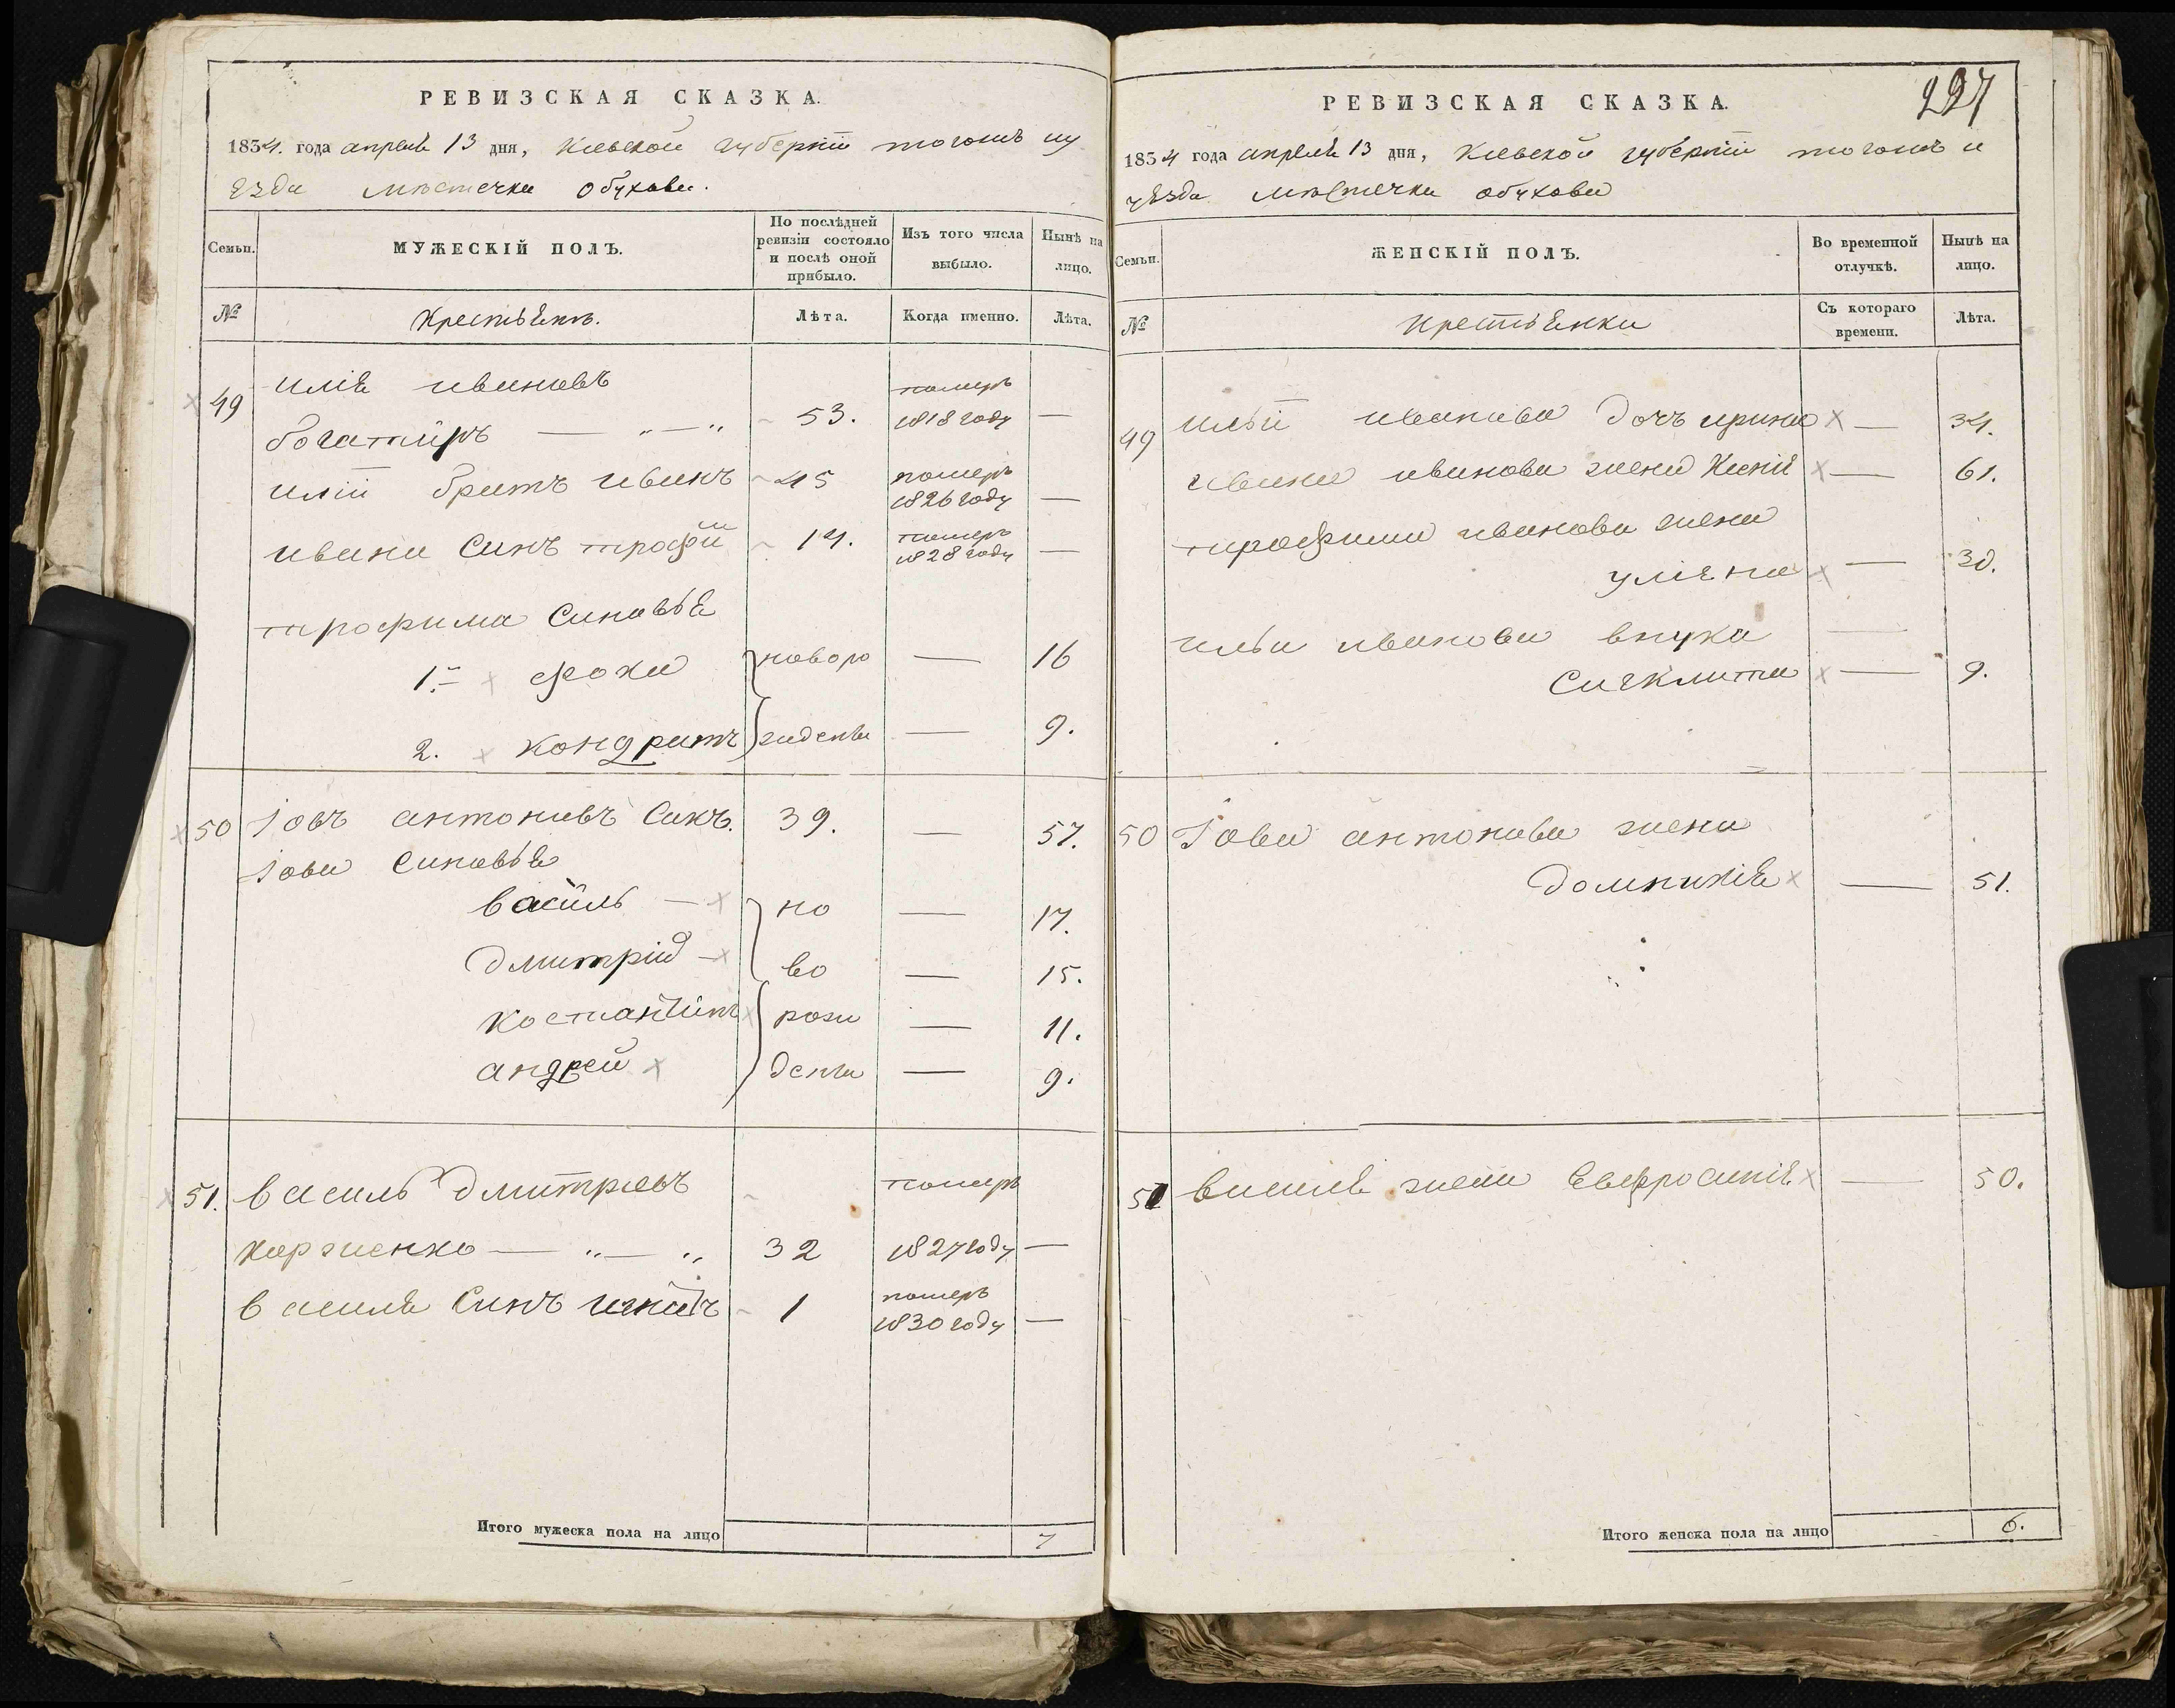 РЕВИЗСКАЯ СКАЗКА.
1834. года апреля 13 дня, Киевской губернїи тогожъ у
ѣзда мѣстечка обухова.
Семьи. МУЖЕСКІЙ ПОЛЪ. По послѣдней ревизіи состояло и послѣ оной прибыло. Изъ того числа выбыло. Нынѣ на лицо.
№ Крестьянъ. Лѣта. Когда именно. Лѣта.
49 илія ивановъ
богатиръ — „ — „ 53. померъ 1818 году —
илїи братъ иванъ 45 померъ 1826 году —
ивана синъ трофи 14. померъ 1828 году —
трофима синовья
1. фока новоро — 16
2. кондратъ жденни — 9.
50 Іовъ антоновъ синъ. 39. — 57.
Іова синовья
василь — но — 17.
дмитрій — во — 15.
костантинъ рож — 11.
андрей дени — 9.
51. василь дмитриевъ померъ
коржиенко — „ — „ 32 1827 году —
василя синъ игнатъ 1 померъ 1830 году —
Итого мужеска пола на лицо 7
227
РЕВИЗСКАЯ СКАЗКА.
1834 года апреля 13 дня, Киевской губернїи тогожъ и
уѣзда мѣстечка обухова
Семьи. ЖЕНСКІЙ ПОЛЪ. Во временной отлучкѣ. Нынѣ на лицо.
№ крестьянки Съ котораго времени. Лѣта.
49 ильїи иванова дочъ ирина — 34.
ивана иванова жена Ксенїи — 61.
трофима иванова жена
улияна — 30.
ильи иванова внука —
сигклита — 9.
50 Іова антонова жена
домникія — 51.
51 василя жена Евфросинія — 50.
Итого женска пола на лицо 6.